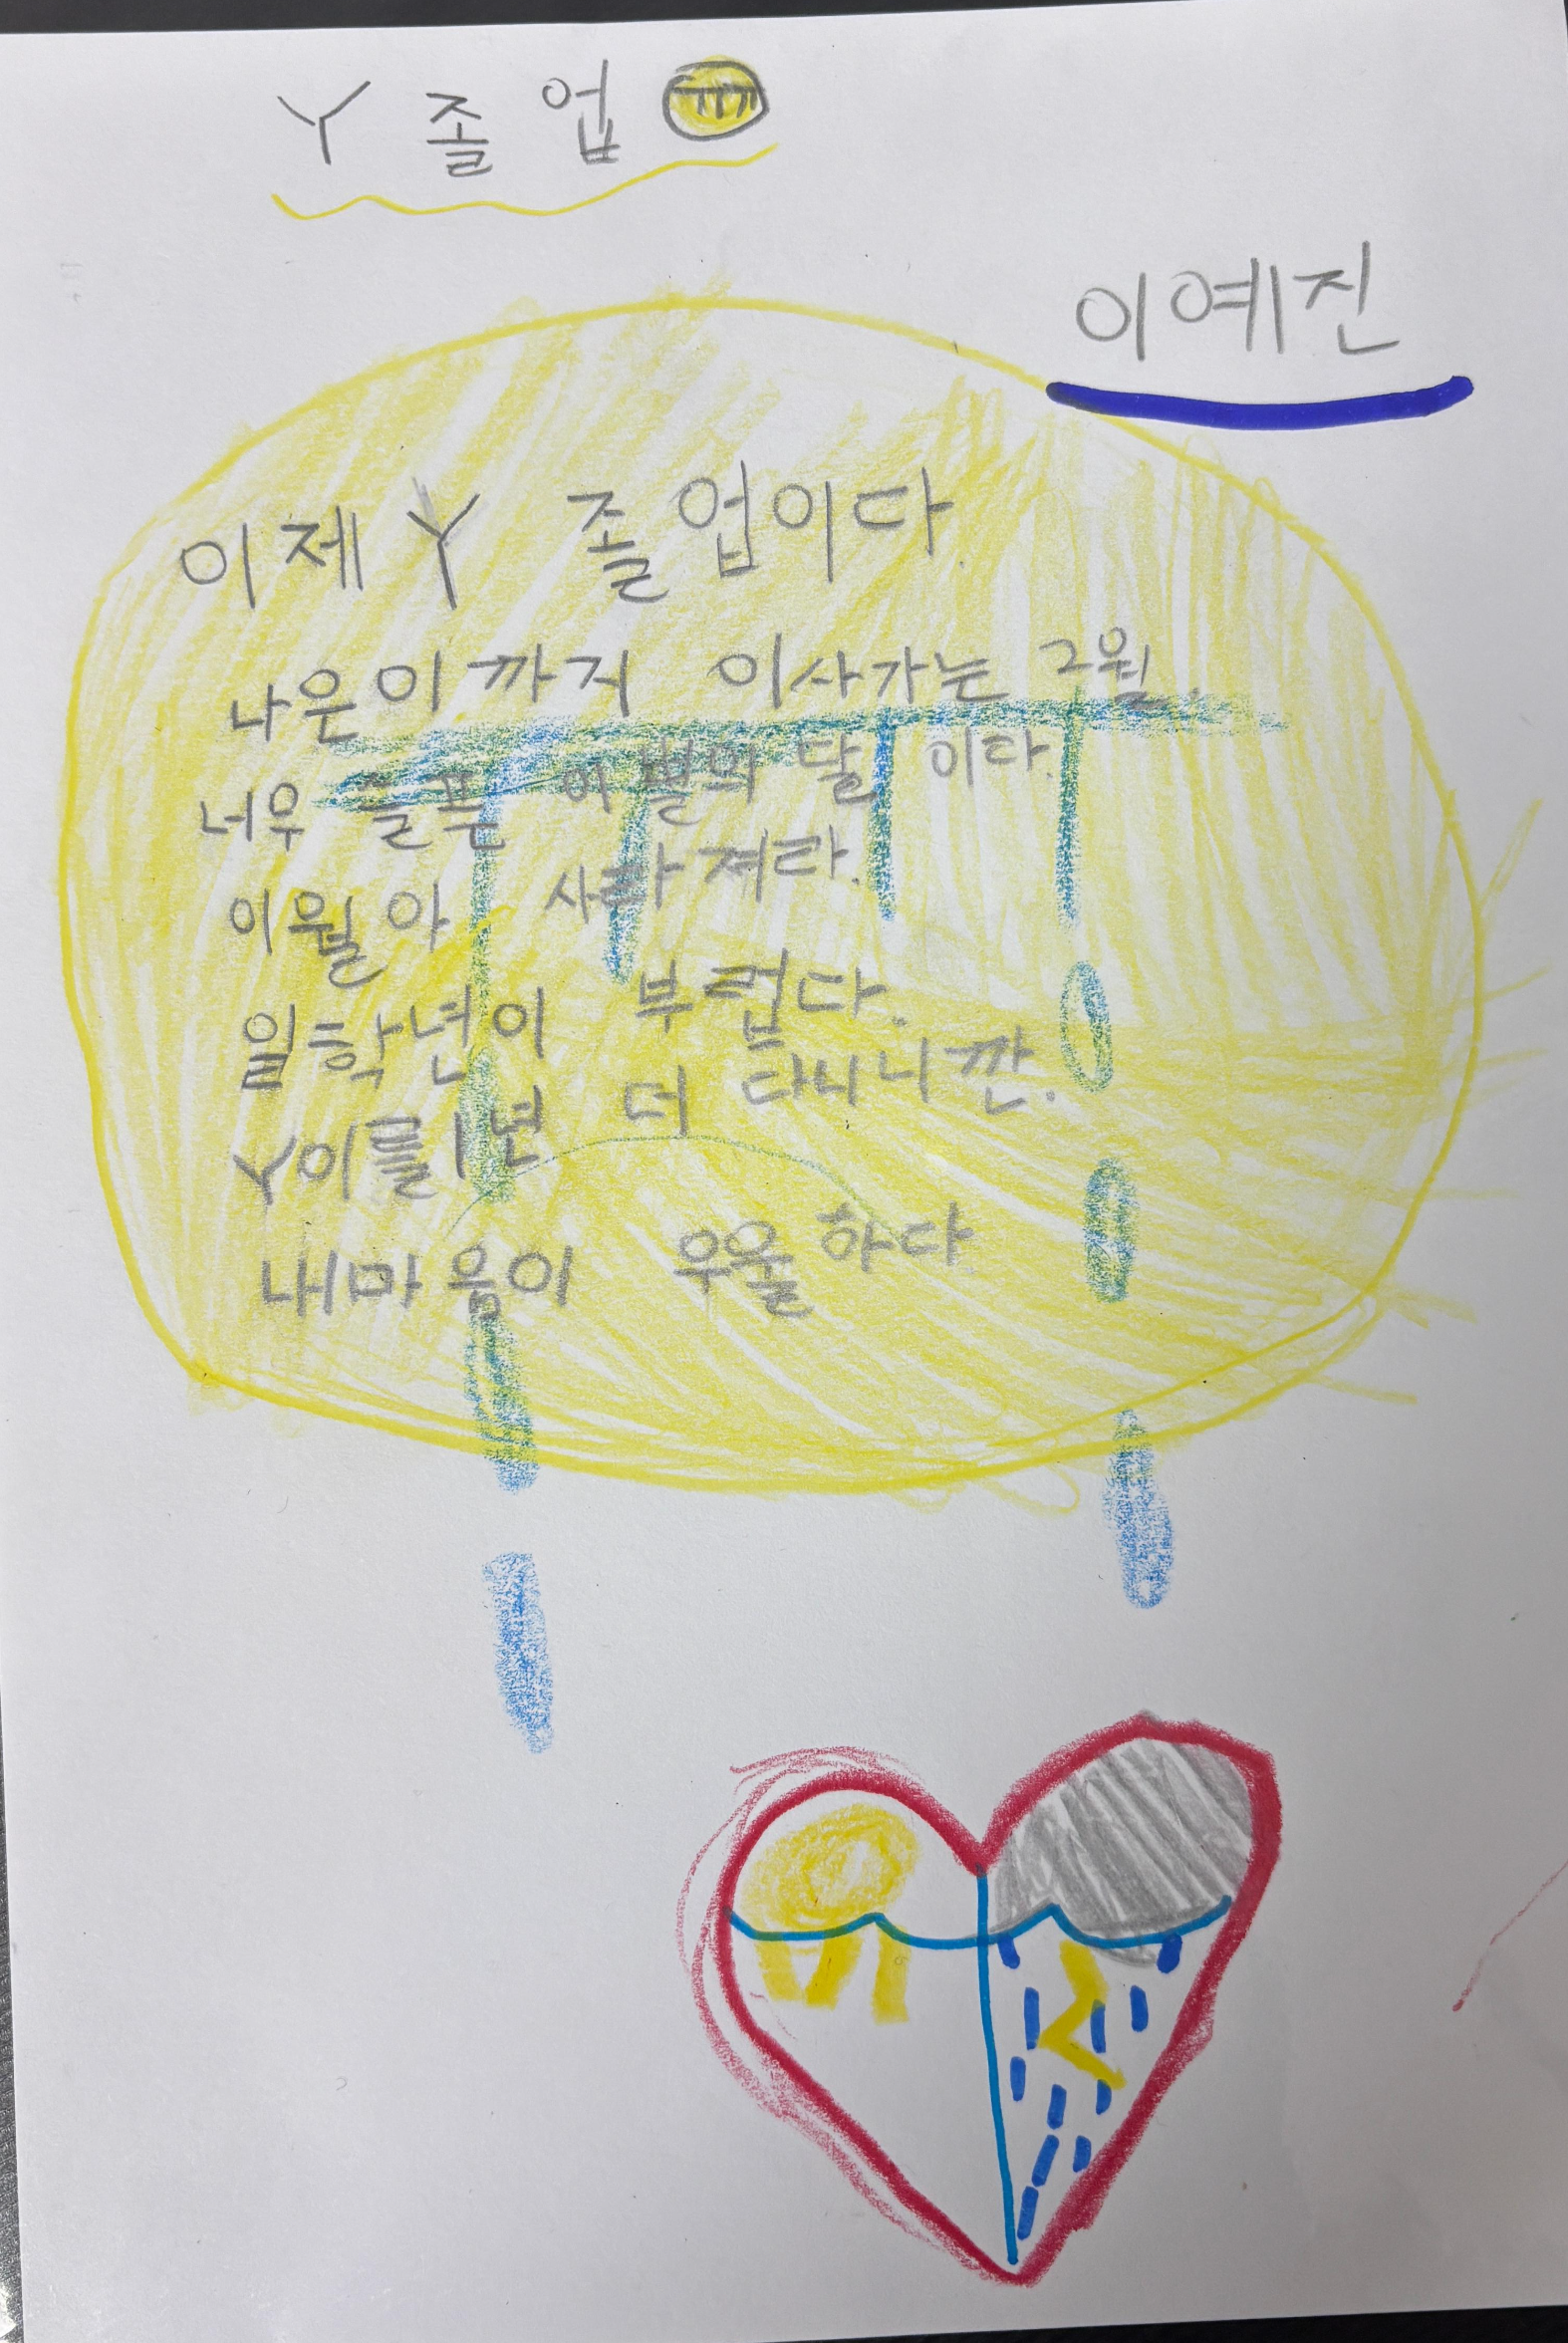 Y 졸업
이예진
이제 Y 졸업이다
나은이까지 이사가는 2월.
너우 슬픈 이별의 달 이다.
이월아 사라져라.
일학년이 부럽다.
Y이를 1년 더 다니니깐.
내마음이 우울하다